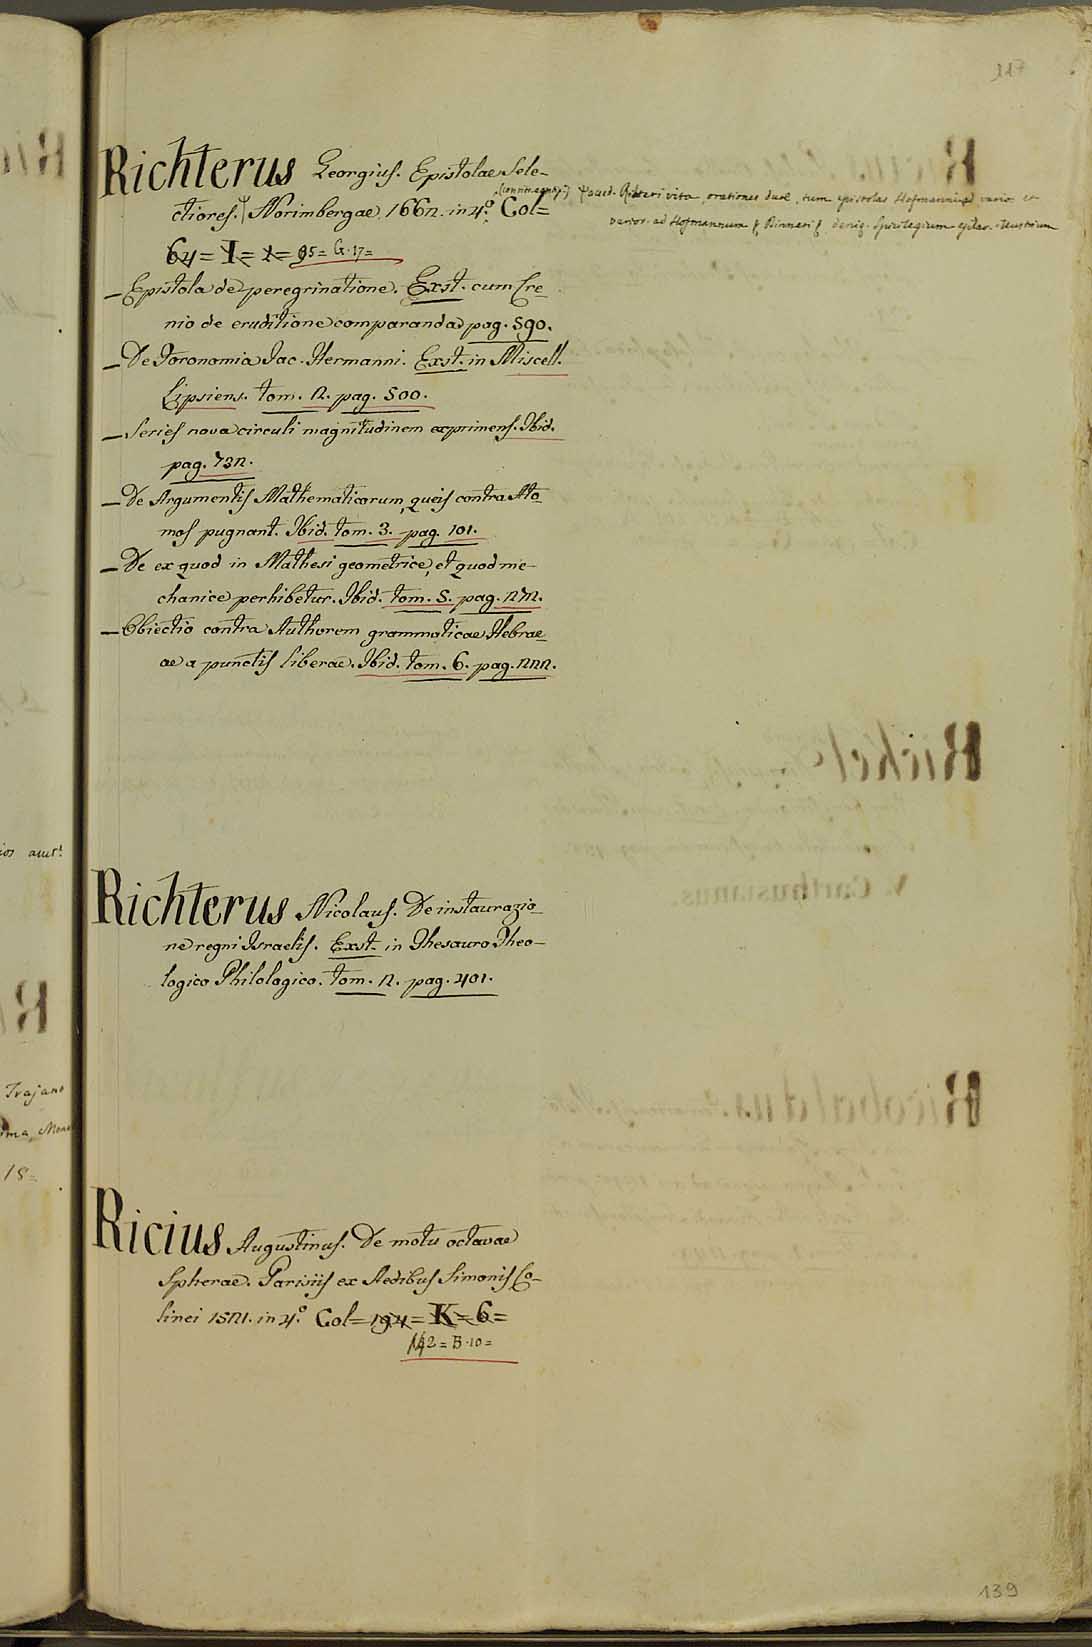 117
Richterus Georgius. Epistolae Sele-
ctiores. Norimbergae 1662. in 4.º Col=
64 = I = 1 = 95 = G. 17 =
vita orationes duae, tum epistolas Hofmanni ad varios et
varior. ad Hofmannum
— Epistola de peregrinatione. Exst. cum Cre-
nio de eruditione comparanda pag. 590.
— De Phoronomia Jac. Hermanni. Exst. in Miscell.
Lipsiens. tom. 2. pag. 500.
— Series nova circuli magnitudinem exprimens. Ibid.
pag. 732.
— De Argumentis Mathematicorum, queis contra Ato-
mos pugnant. Ibid. tom. 3. pag. 101.
— De ex quod in Mathesi geometrice, et quod me-
chanice perhibetur. Ibid. tom. 5. pag. 272.
— Obiectio contra Authorem grammaticae Hebrae-
ae a punctis liberae. Ibid. tom. 6. pag. 222.
Richterus Nicolaus. De instauratio-
ne regni Israelis. Exst. in Thesauro Theo-
logico Philologico. tom. 2. pag. 401.
Ricius Augustinus. De motu octavae
Spherae. Parisiis ex Aedibus Simonis Co-
linei 1521. in 4.º Col = 194 = K = 6 =
142 = B. 10 =
Trajano
18 =
139